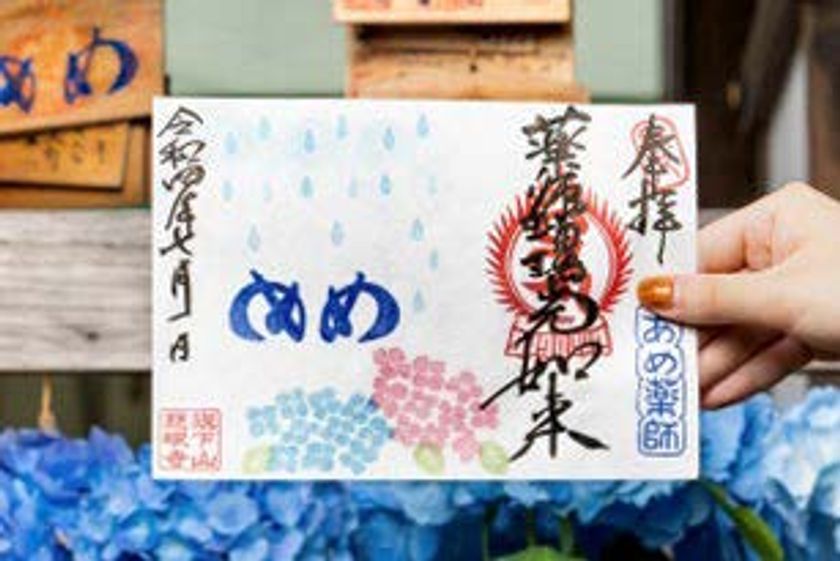 奉拝
あめ薬師
薬師瑠璃光如来
め め
令和四年七月一日
慈眼寺
め め